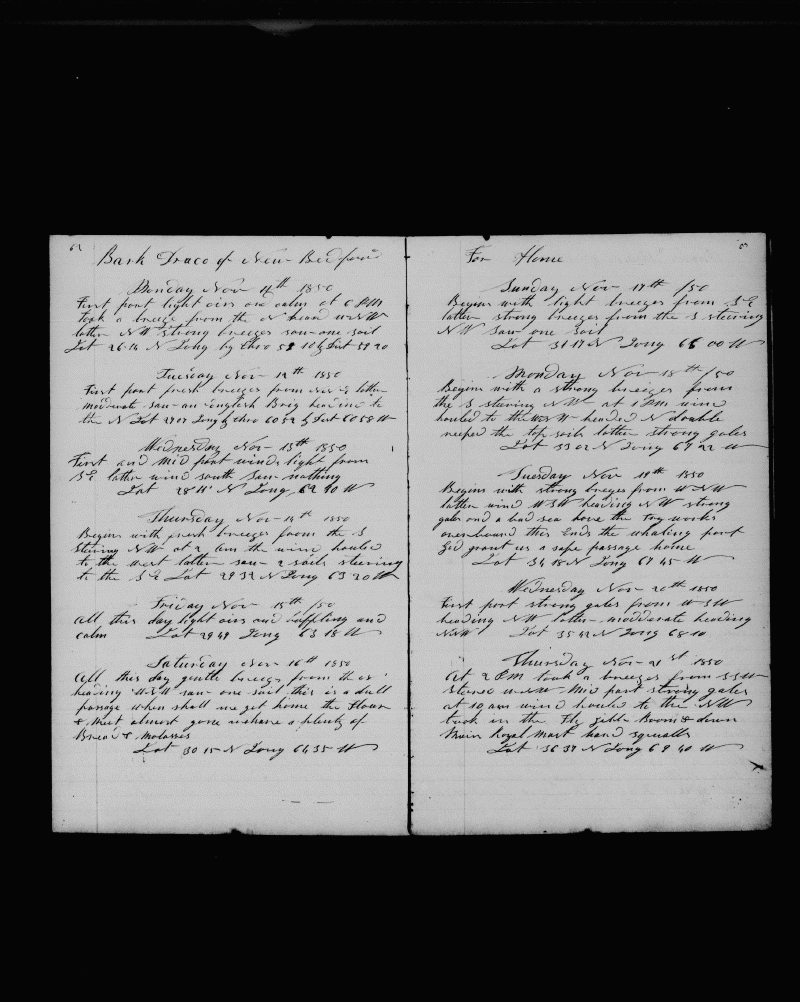 62
Bark Draco of New Bedford
Monday Nov 11th 1850
First part light airs and calm at 6 PM
took a breeze from the N head WNW
latter NW strong breezes saw one sail
Lat 26 14 N Long by Chro 59 20
Tuesday Nov 12th 1850
First part fresh breezes from latter
moderate saw an english Brig heading to
the N Lat 27 07 Long by Chro 60 52 by Lat 60 58 W
Wednesday Nov 13th 1850
First and mid part winds light from
SE latter wind south saw nothing
Lat 28 11 N Long 62 40 W
Thursday Nov 14th 1850
Begins with fresh breezes from the S
stering NW at 2 am the wind hauled
to the west latter saw 2 sails steering
to the SE Lat 29 32 N Long 63 20 W
Friday Nov 15th /50
All this day light airs and baffling and
calm Lat 29 49 Long 63 18 W
Saturday Nov 16th 1850
All this day gentle breezes from the
heading WSW saw one sail this is a dull
passage when shall we get home the Flour
& Meet almost gone we have a plenty of
Bread & Molasses
Lat 30 15 N Long 64 35 W
For Home
Sunday Nov 17th /50
Begins with light breezes from SE
latter strong breezes from the S steering
NW saw one sail
Lat 31 17 N Long 66 00 W
Monday Nov 18th /50
Begins with a strong breezes from
the S stering NW at 1 PM wind
hauled to the WNW headed N double
reeped the top sails latter strong gales
Lat 33 02 N Long 67 22 W
Tuesday Nov 19th 1850
Begins with strong breezes from WNW
latter wind WSW heading NW strong
gales and a bad sea hove the try works
overbound this Ends the whaling part
God grant us a safe passage home
Lat 34 18 N Long 67 45 W
Wednesday Nov 20th 1850
First part strong gales from WSW
heading NW latter modderate heading
NNW Lat 35 42 N Long 68 10
Thursday Nov 21st 1850
At 2 PM took a breezes from SSW
steared WNW Mid part strong gales
at 10 am wind hauled to the NW
took in the Fly Jibb Boom & down
Main Royal Mast hard squalls
Lat 36 37 N Long 69 40 W